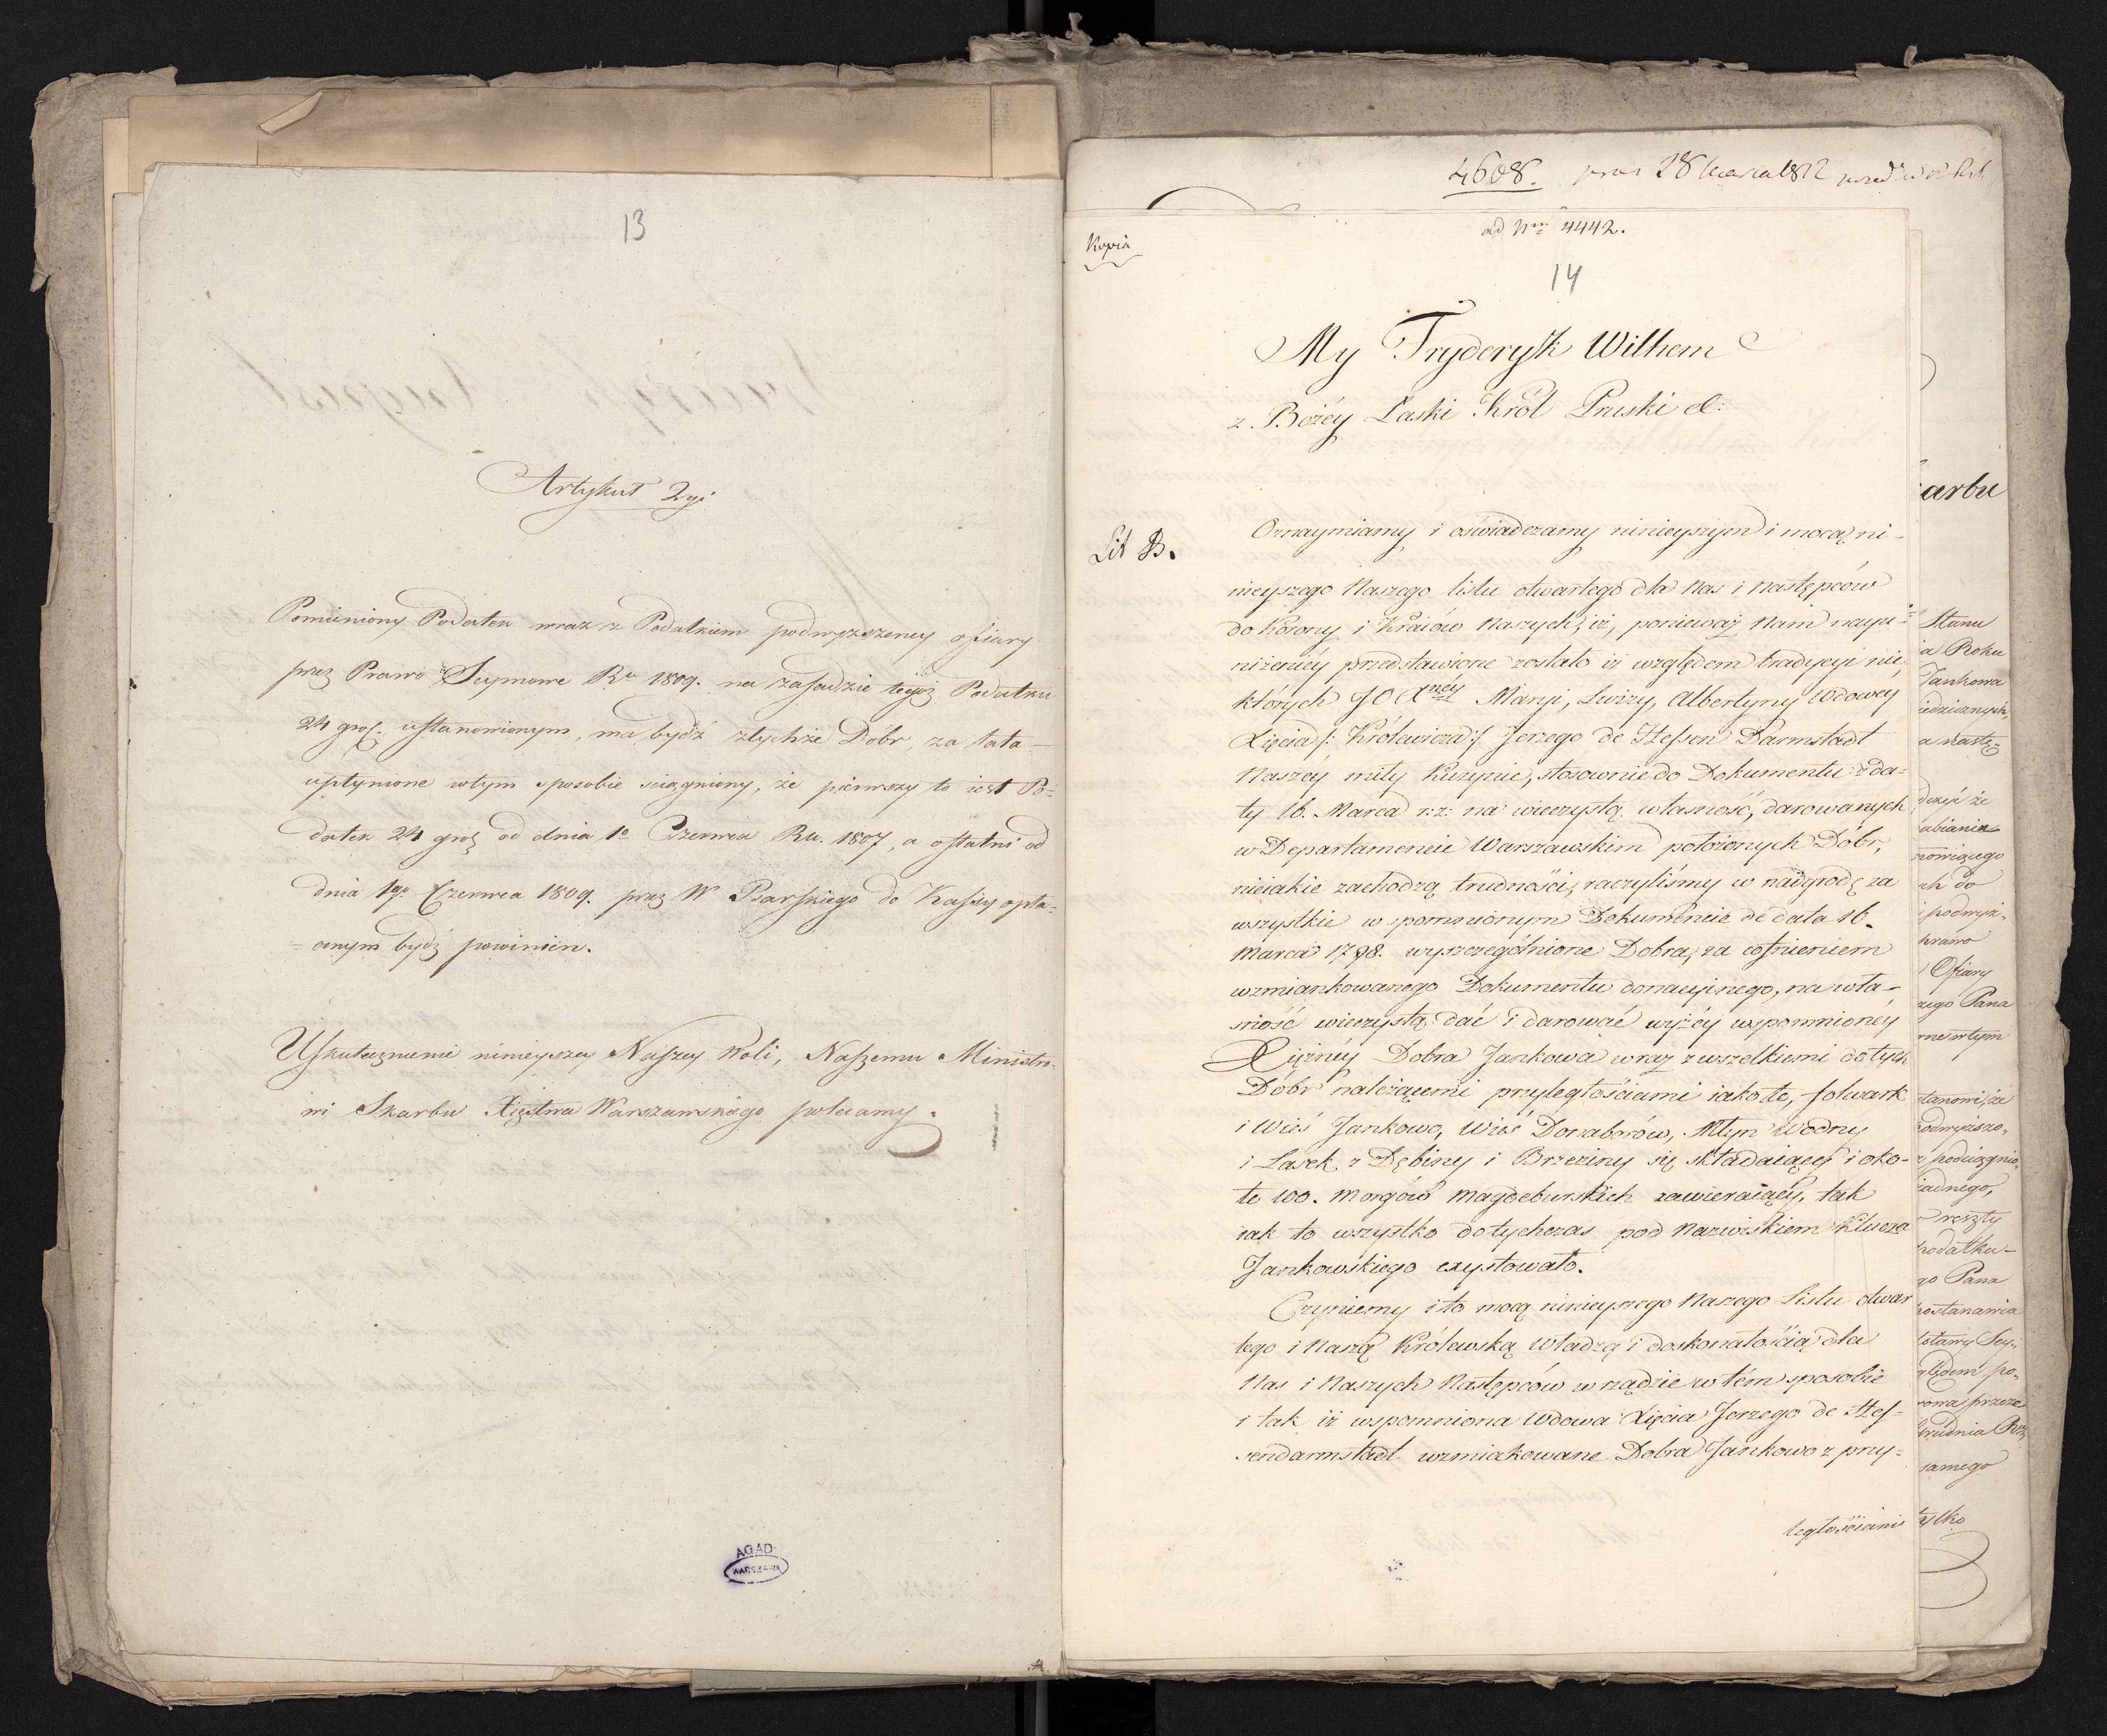 13
Artykuł 2gi
Pomieniony Podatek wraz z Podatkiem podwyższoney ofiary
przez Prawo Seymowe Ru 1809. na zasadzie tegoż Podatku
24 gros. ustanowionym, ma bydź ztychże Dóbr, za lata
upłynione wtym sposobie sciągniony, że pierwszy to iest Po=
datek 24 grosz od dnia 1o Czerwca Ru. 1807, a ostatni od
dnia 1go Czerwca 1809. przez W Psarskiego do Kassy opła=
=conym bydź powinien.
Uskutecznienie ninieyszey Naszey Woli, Naszemu Ministro=
wi Skarbu Xięstwa Warszawskiego polecamy.
AGAD
WARSZAWA
4608. 28 1812
ad Nrm 4442.
Kopia
14
My Fryderyk Wilhem
z Bożéy Łaski Król Pruski et:
Lit B.
Oznaymiamy i oświadczamy ninieyszym i mocą ni-
nieyszego Naszego listu otwartego dla Nas i Następców
do Korony i Kraiów Naszych, iż, ponieważ Nam nayu=
niżeniéy przedstawione zostało iż względem tradycyi nie
których JO Xnéy Maryi, Luizy, Albertyny Wdowéy
Xięcia /: Królewicza :/ Jerzego de Hessen Darmstadt
Naszéy miły Kuzynie, stosownie do Dokumentu z da=
ty 16. Marca r: z: na wieczystą własność, darowanych
w Departamencie Warszawskim położonych Dóbr,
nieiakie zachodzą trudności, raczyliśmy w nadgrodę za
wszystkie w spomnionym Dokumencie de dato 16.
Marca 1798. wyszczególnione Dobra, za cofnieniem
wzmiankowanego Dokumentu donacyinego, na wła-
sność wieczystą dać i darować wyżéy wspomnionéy
Xiężnéy Dobra Jankowa wraz z wszelkiemi do tych
Dóbr należącemi przyległościami iako to, folwark
i Wieś Jankowo, Wieś Donaborów, Młyn Wodny
i Lasek z Dębiny i Brzeziny się składaiący i oko-
ło 100. morgów magdeburskich zawieraiący, tak
iak to wszystko dotychczas pod nazwiskiem Klucza
Jankowskiego exystowało.
Czyniemy i to mocą ninieyszego Naszego Listu otwar
tego i Naszą Królewską Władzą i doskonałością dla
Nas i Naszych Następców w rządzie w tém sposobie
i tak iż wspomniona Wdowa Xięcia Jerzego de Hes-
sendarmstadt wzmiakowane Dobra Jankowo z przy=
ległościami
arbu
Stanu
a Roku
Jankowa
iedzicznych,
a nastę=
ubiania
nowiącego
ch do
i podwyż-
prawo
Ofiary
zego Pana
rne w tym
stanowi, że
podwyższo-
podciągnio
żadnego,
reszty
podatku-
go Pana
postanawia
Ustawy Sey-
ględem po-
rona przeze
Grudnia Rz
samego
tylko